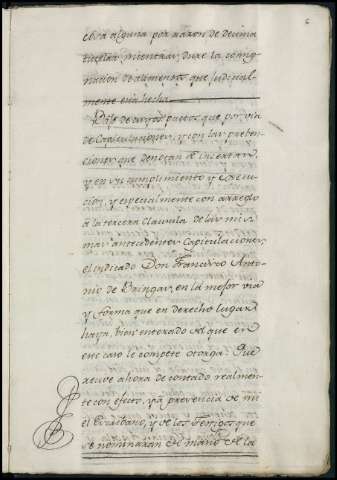 6
otra alguna por razon de decima
tutelar, mientras dure la consig-
nacion de alimentos que judicial-
mente está hecha
Bajo de cuyos pactos que por via
de Capitulaciones, y con las preben-
ciones que denotan se insertan,
y en su cumplimiento y execu-
cion, y especialmente con arreglo
a la tercera Clausula de las mis-
mas antecedentes Capitulaciones,
el indicado Don Francisco Anto-
nio de Bringas, en la mejor via
y forma que en derecho lugar
haya, bien enterado del que en
este caso le compete otorga: Que
recive ahora de contado, realmen-
te con efecto, y à presencia de mi
el Escribano, y de los testigos que
se nominarán de mano de la